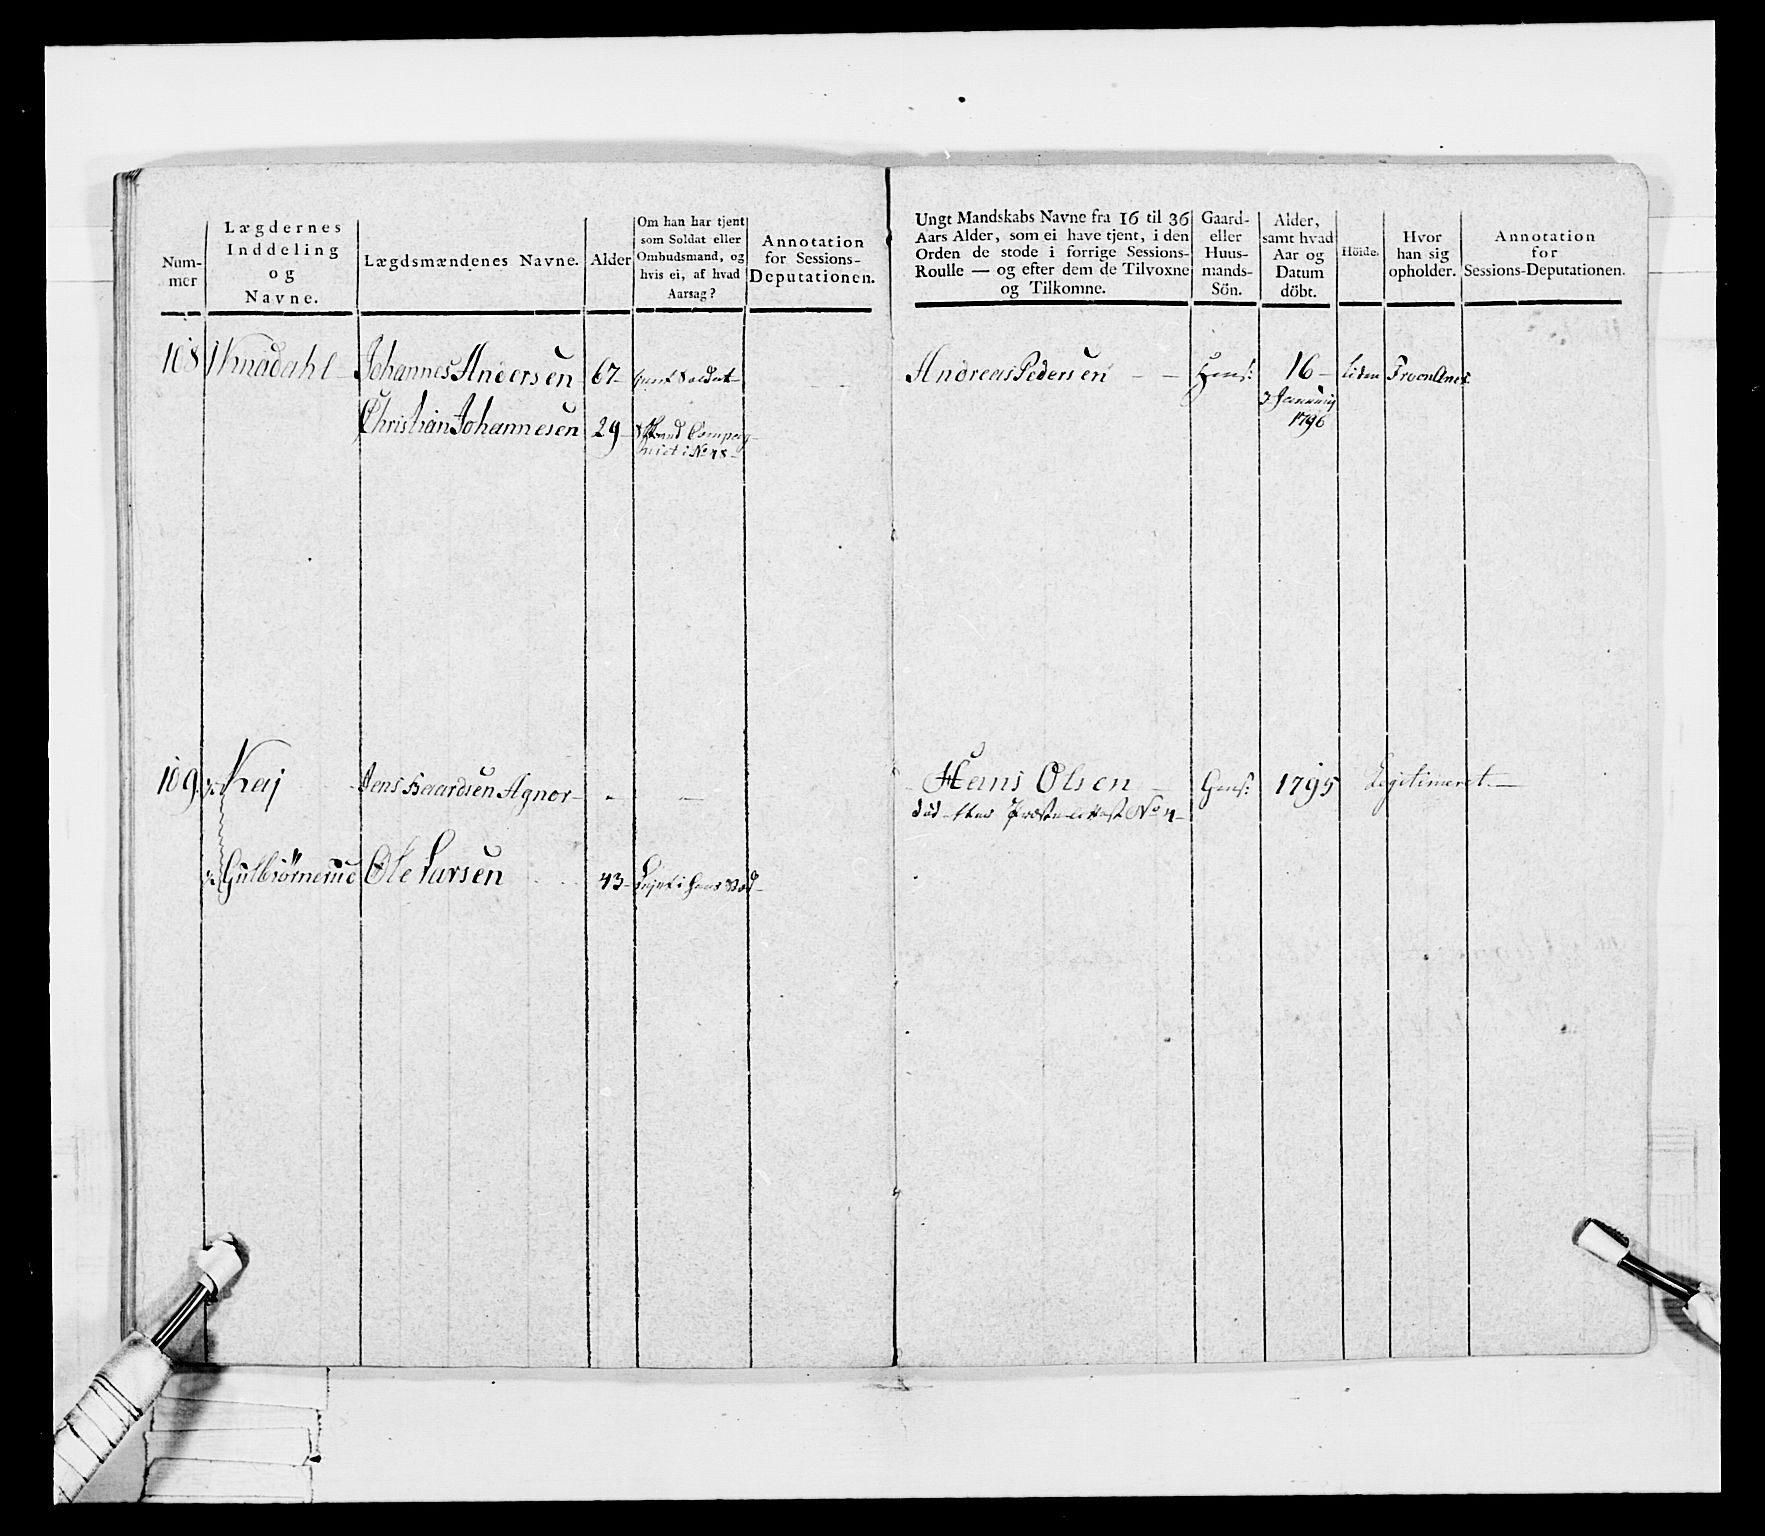 Num-
mer
Lægdernes
Inddeling
og
Navne.
Lægdsmændenes Navne.
Alder
Om han har tjent
som Soldat eller
Ombudsmand, og
hvis ei, af hvad
Aarsag?
Annotation
for Sessions-
Deputationen.
108 Knadahl Johannes Andersen 67 Soldat
Christian Johannesen 29
i No 48
109 Kaj Jens Haardsen Agnor
Gulbiørnerud Ole Larsen 43
Ungt Mandskabs Navne fra 16 til 36
Aars Alder, som ei have tjent, i den
Orden de stode i forrige Sessions-
Roulle — og efter dem de Tilvoxne
og Tilkomne.
Gaard-
eller
Huus-
mands-
Sön.
Alder,
samt hvad
Aar og
Datum
döbt.
Höide.
Hvor
han sig
opholder.
Annotation
for
Sessions-Deputationen.
Andreas Pedersen 16 liden
3 Januarij
1796
Hans Olsen 1795 Legitimeret
død efter No 4